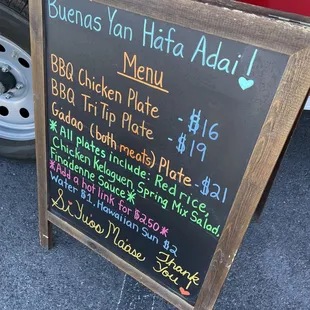 Buenas Yan Håfa Adai!
Menu
BBQ Chicken Plate - $16
BBQ Tri Tip Plate - $19
Gadao (both meats) Plate - $21
*All plates include: Red rice,
Chicken Kelaguen, Spring Mix Salad,
Finadenne Sauce*
*Add a hot link for $250*
Water $1. Hawaiian Sun $2
Si Yuos Maase
Thank
You